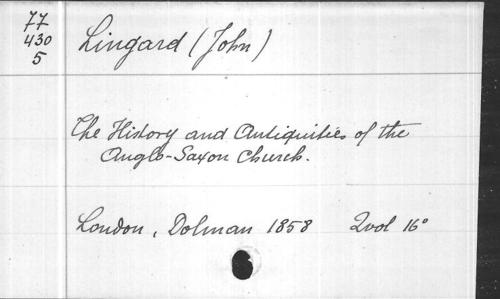 77
430
5
Lingard (John)
The History and Antiquities of the
Anglo-Saxon Church.
London, Dolman 1858 2vol 16°